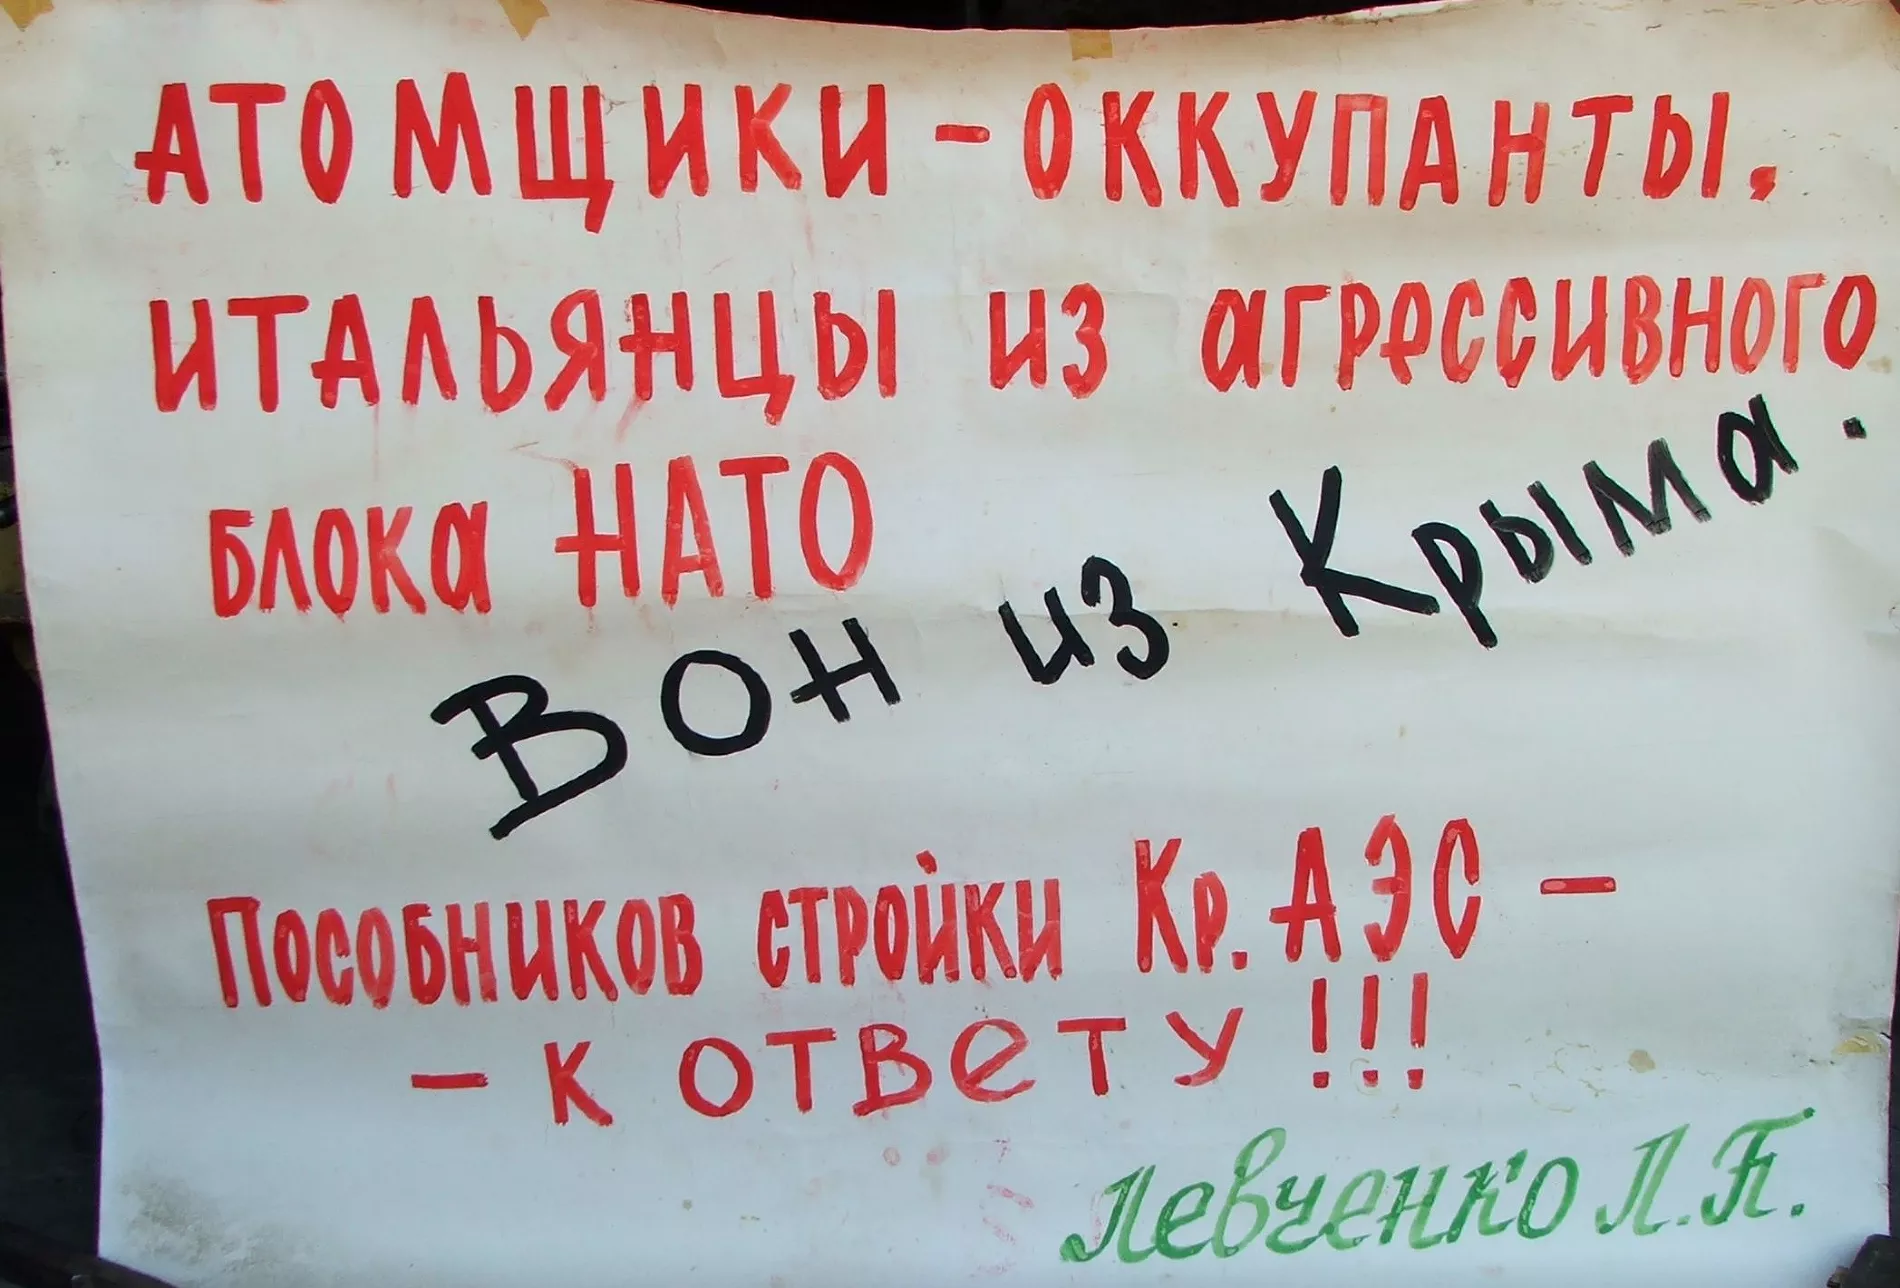 АТОМЩИКИ - ОККУПАНТЫ,
ИТАЛЬЯНЦЫ ИЗ АГРЕССИВНОГО
БЛОКА НАТО
ВОН ИЗ КРЫМА.
ПОСОБНИКОВ СТРОЙКИ КР. АЭС -
- К ОТВЕТУ!!!
Левченко Л.П.